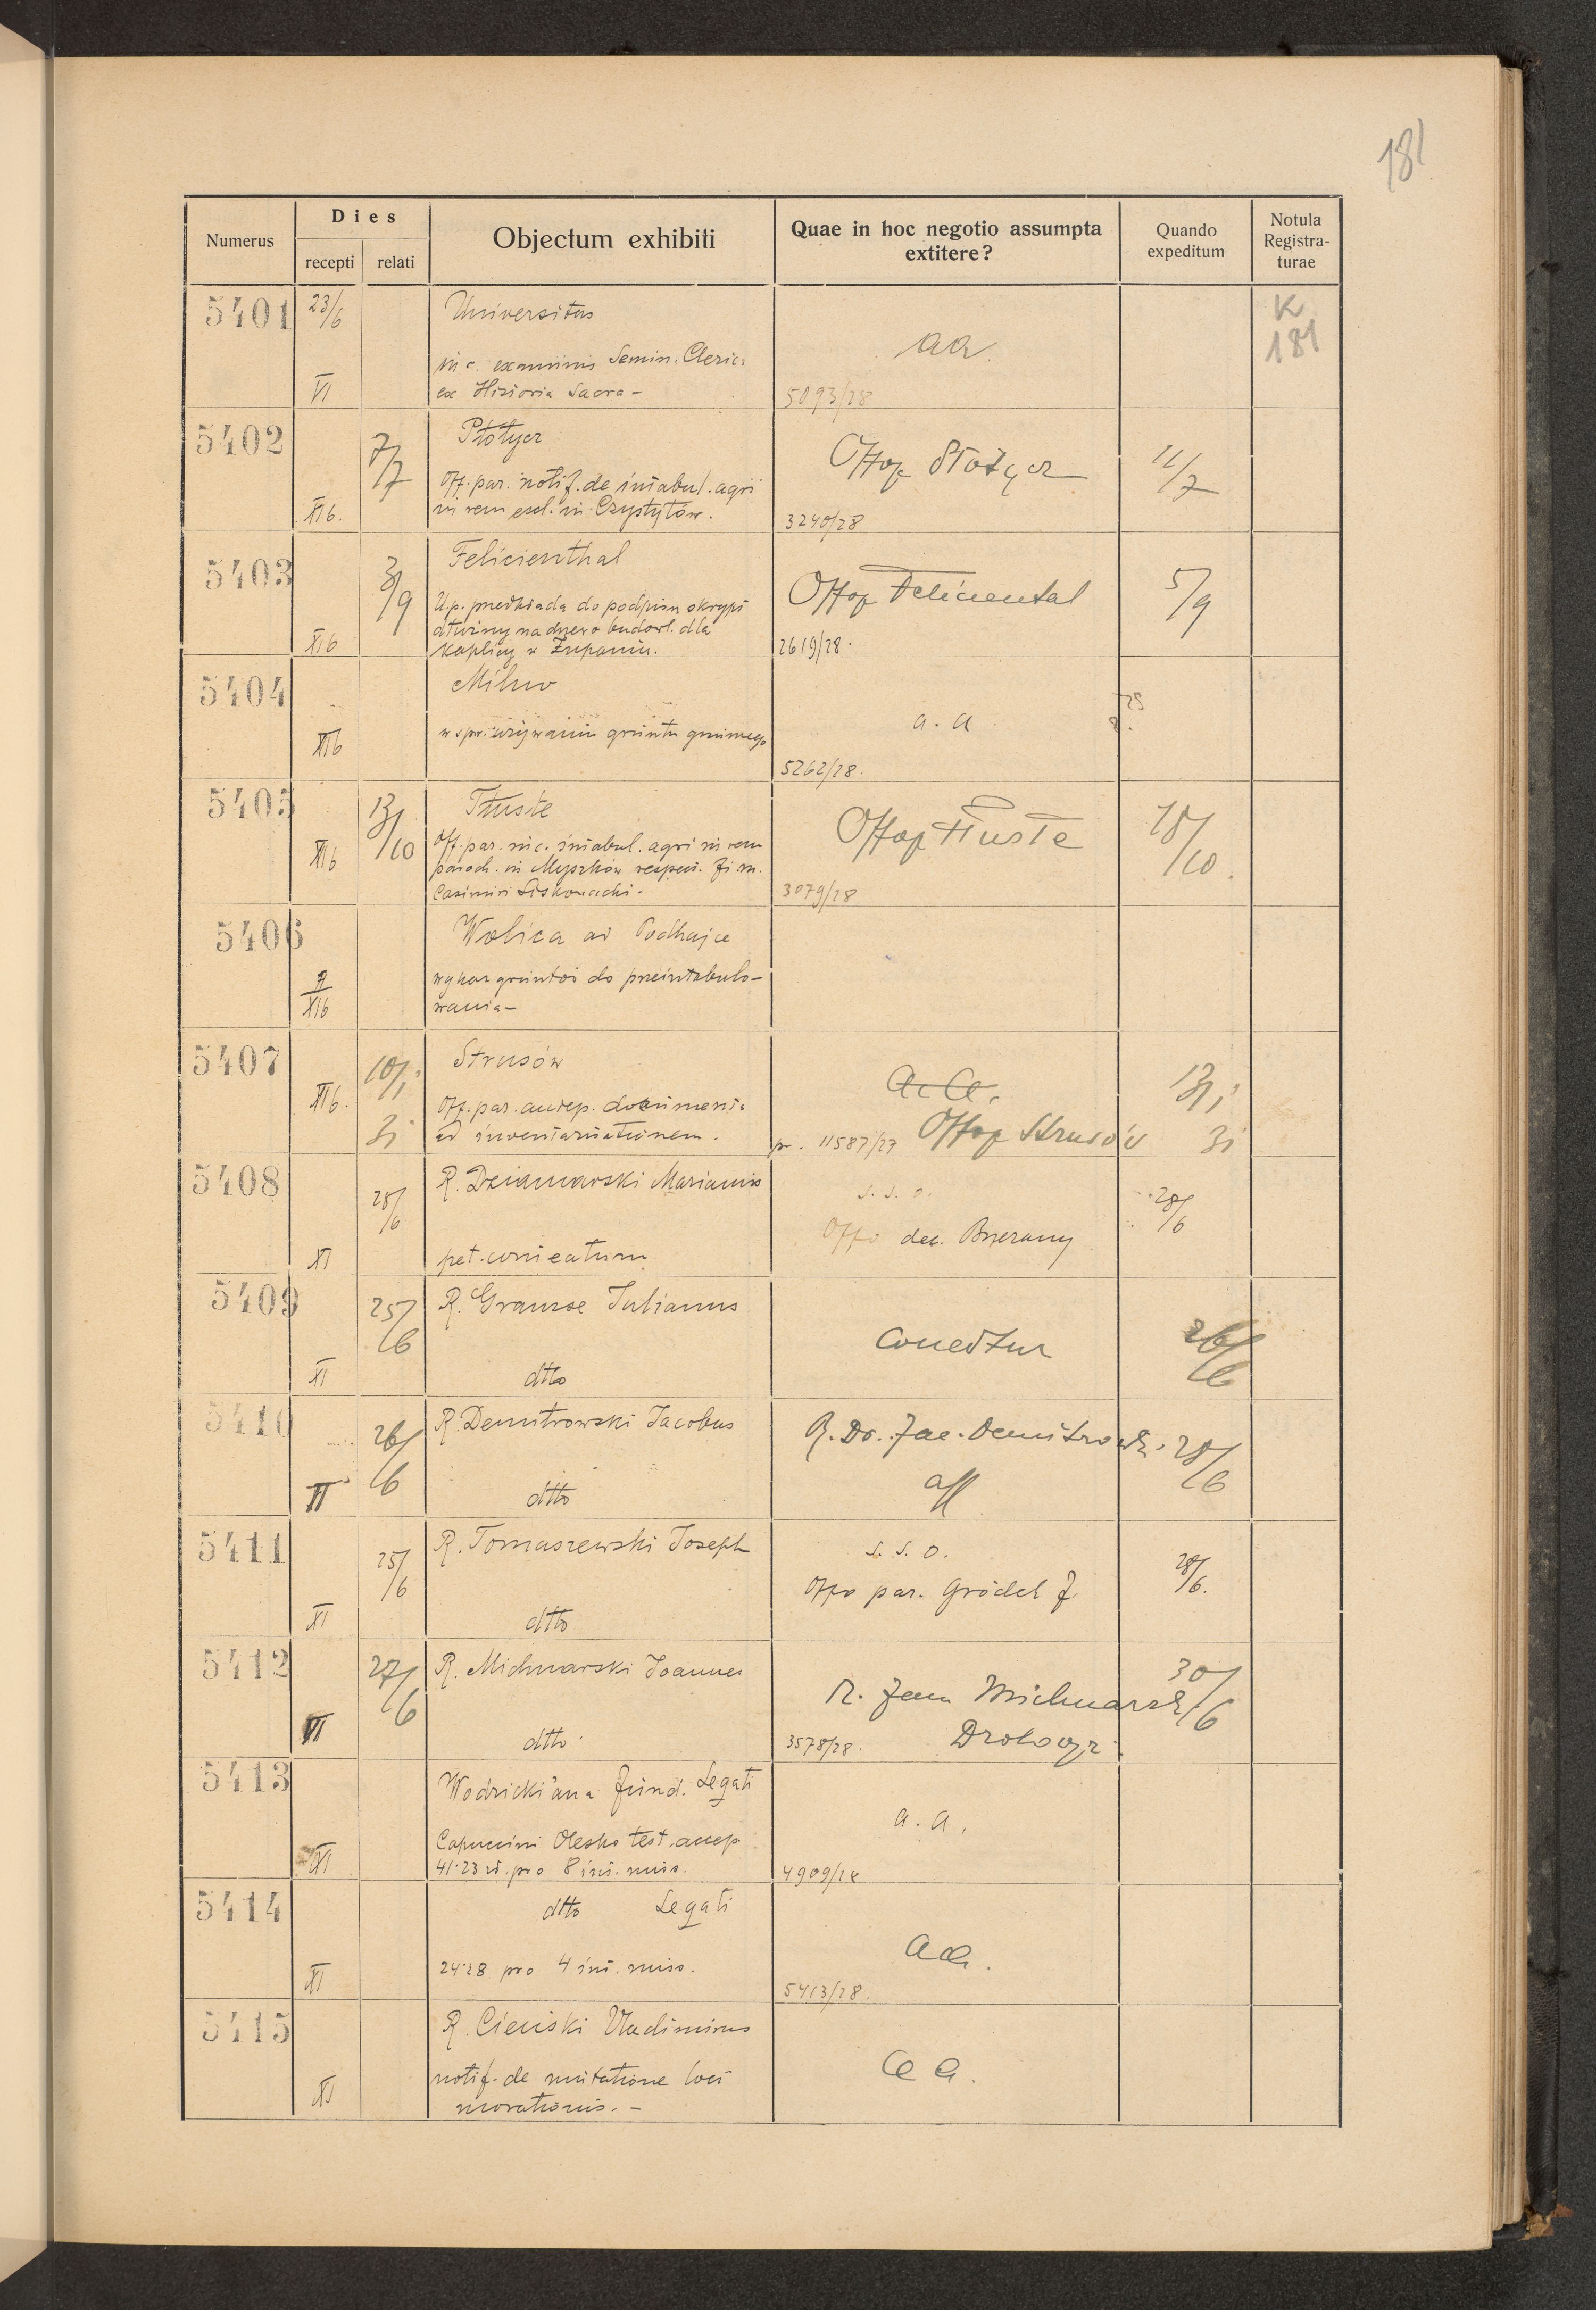 181
Numerus
Dies
recepti
relati
Objectum exhibiti
Quae in hoc negotio assumpta extitere?
Quando expeditum
Notula Registra-turae
5401
23/6
VI
Universitas
in c. examinis Semin. Cleric.
ex Historia Sacra -
aa.
5093/28
K
181
5402
XIb.
7/7
Płotycz
Off. par. notif. de intabul. agri
in rem eccl. in Czystyłów.
Offop Płotycz
3240/28
11/7
5403
XIb
3/9
Felicienthal
U.p. przedkłada do podpisu skrypt
dłużny na drzewo budowl. dla
kaplicy w Żupaniu.
Offop Felicienthal
2619/28.
5/9
5404
XIb
Milno
w spr. używania gruntu gminnego
a.a
5262/28.
5405
XIb
13/10
Tłuste
Off. par. in c. intabul. agri in rem
paroch. in Myszków respect.
Casimiri
Offop Tłuste
3079/28
18/10.
5406
XIb
Wolica ad Podhajce
wykaz gruntów do przeintabulo-
wania -
5407
XIb.
10/1
31
Strusów
Off. par. accep. documenta
ad inventarisationem.
a.a.
pr. 11587/27 Offop Strusów
13/1
31
5408
XI
28/6
R. Dziamarski Marianus
pet. commeatum
s. s. o.
Offo dec. Brzeżany
28/6
5409
XI
25/6
R. Gramse Julianus
dtto
Concedtur
26/6
5410
VI
26/6
R. Demitrowski Jacobus
dtto
R. Dr. Jac. Demitrowski
aff
28/6
5411
XI
25/6
R. Tomaszewski Joseph
dtto
s. s. o.
Offo par. Gródek J.
28/6.
5412
VI
27/6
R. Michnarski Joannes
dtto
R. Joan Michnarski
3578/28. Drohobycz
30/6
5413
XI
Wodzicki'ana fund. Legati
Capuccini Olesko test. accep
41.23 zł. pro 8 int. miss.
a.a.
4909/28
5414
XI
dtto Legati
24.28 pro 4 int. miss.
aa.
5413/28.
5415
XI
R. Cieński Vladimirus
notif. de mutatione loci
morationis. -
aa.